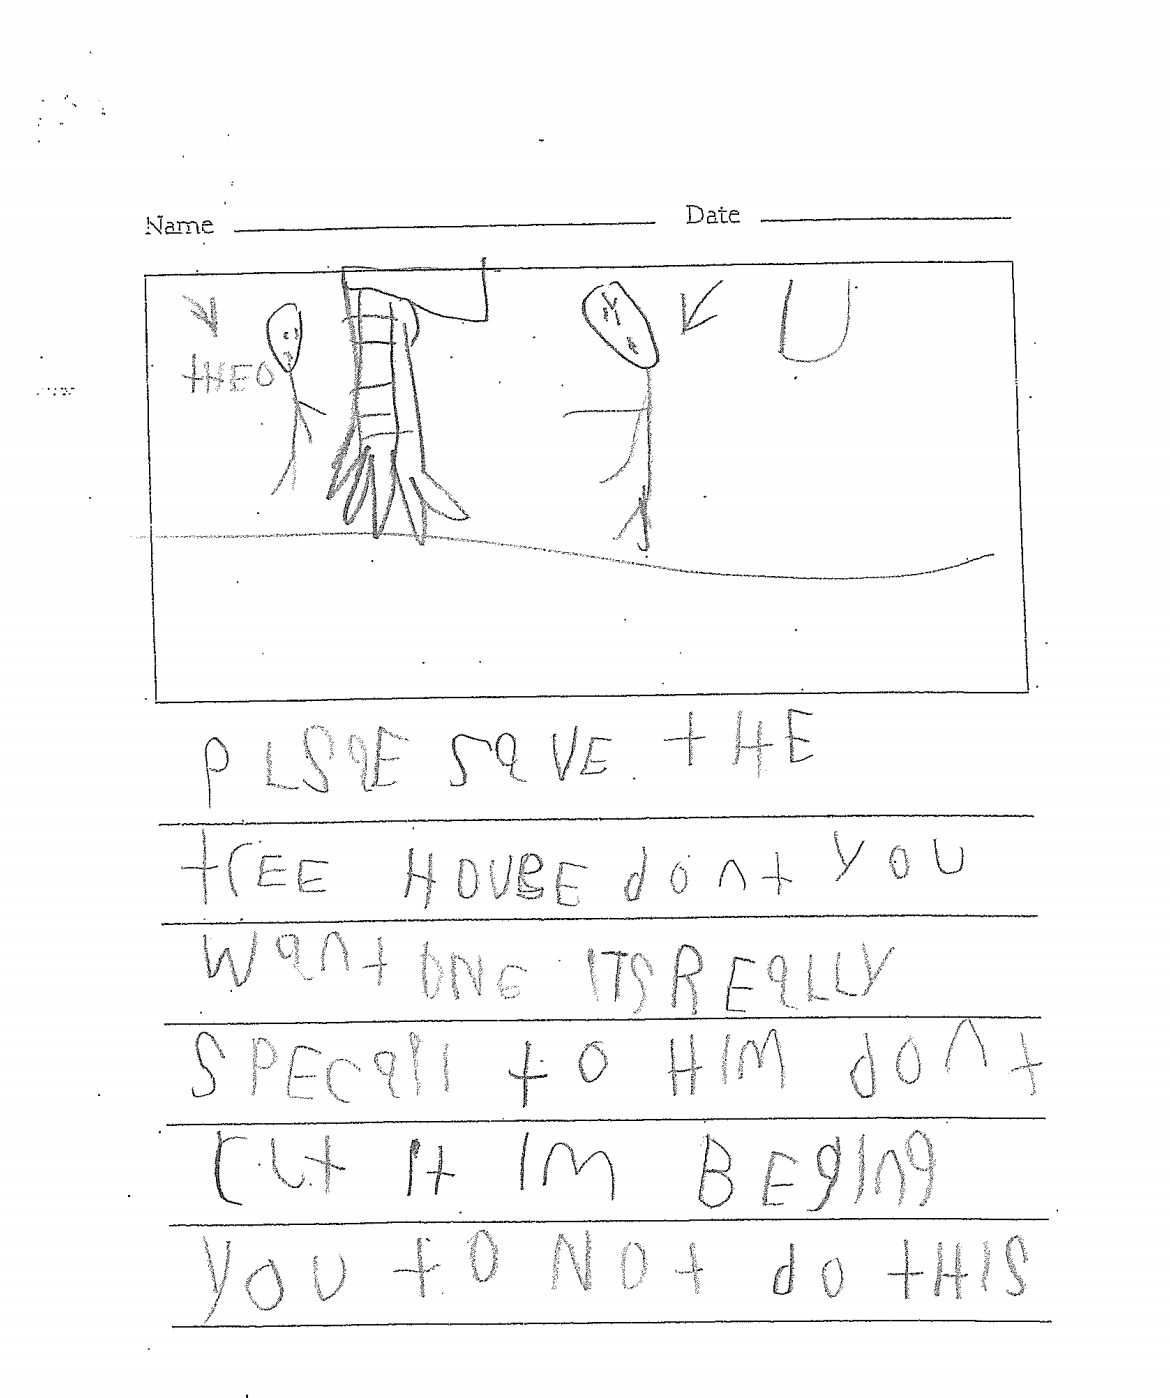 Name Date
tHEO U
PLSaE SaVE tHE
trEE HOUSE dont YOU
Want ONE ITS REaLLY
SPECall to HIM dont
Cut It IM BEgIng
YOU tO NOt do tHIS